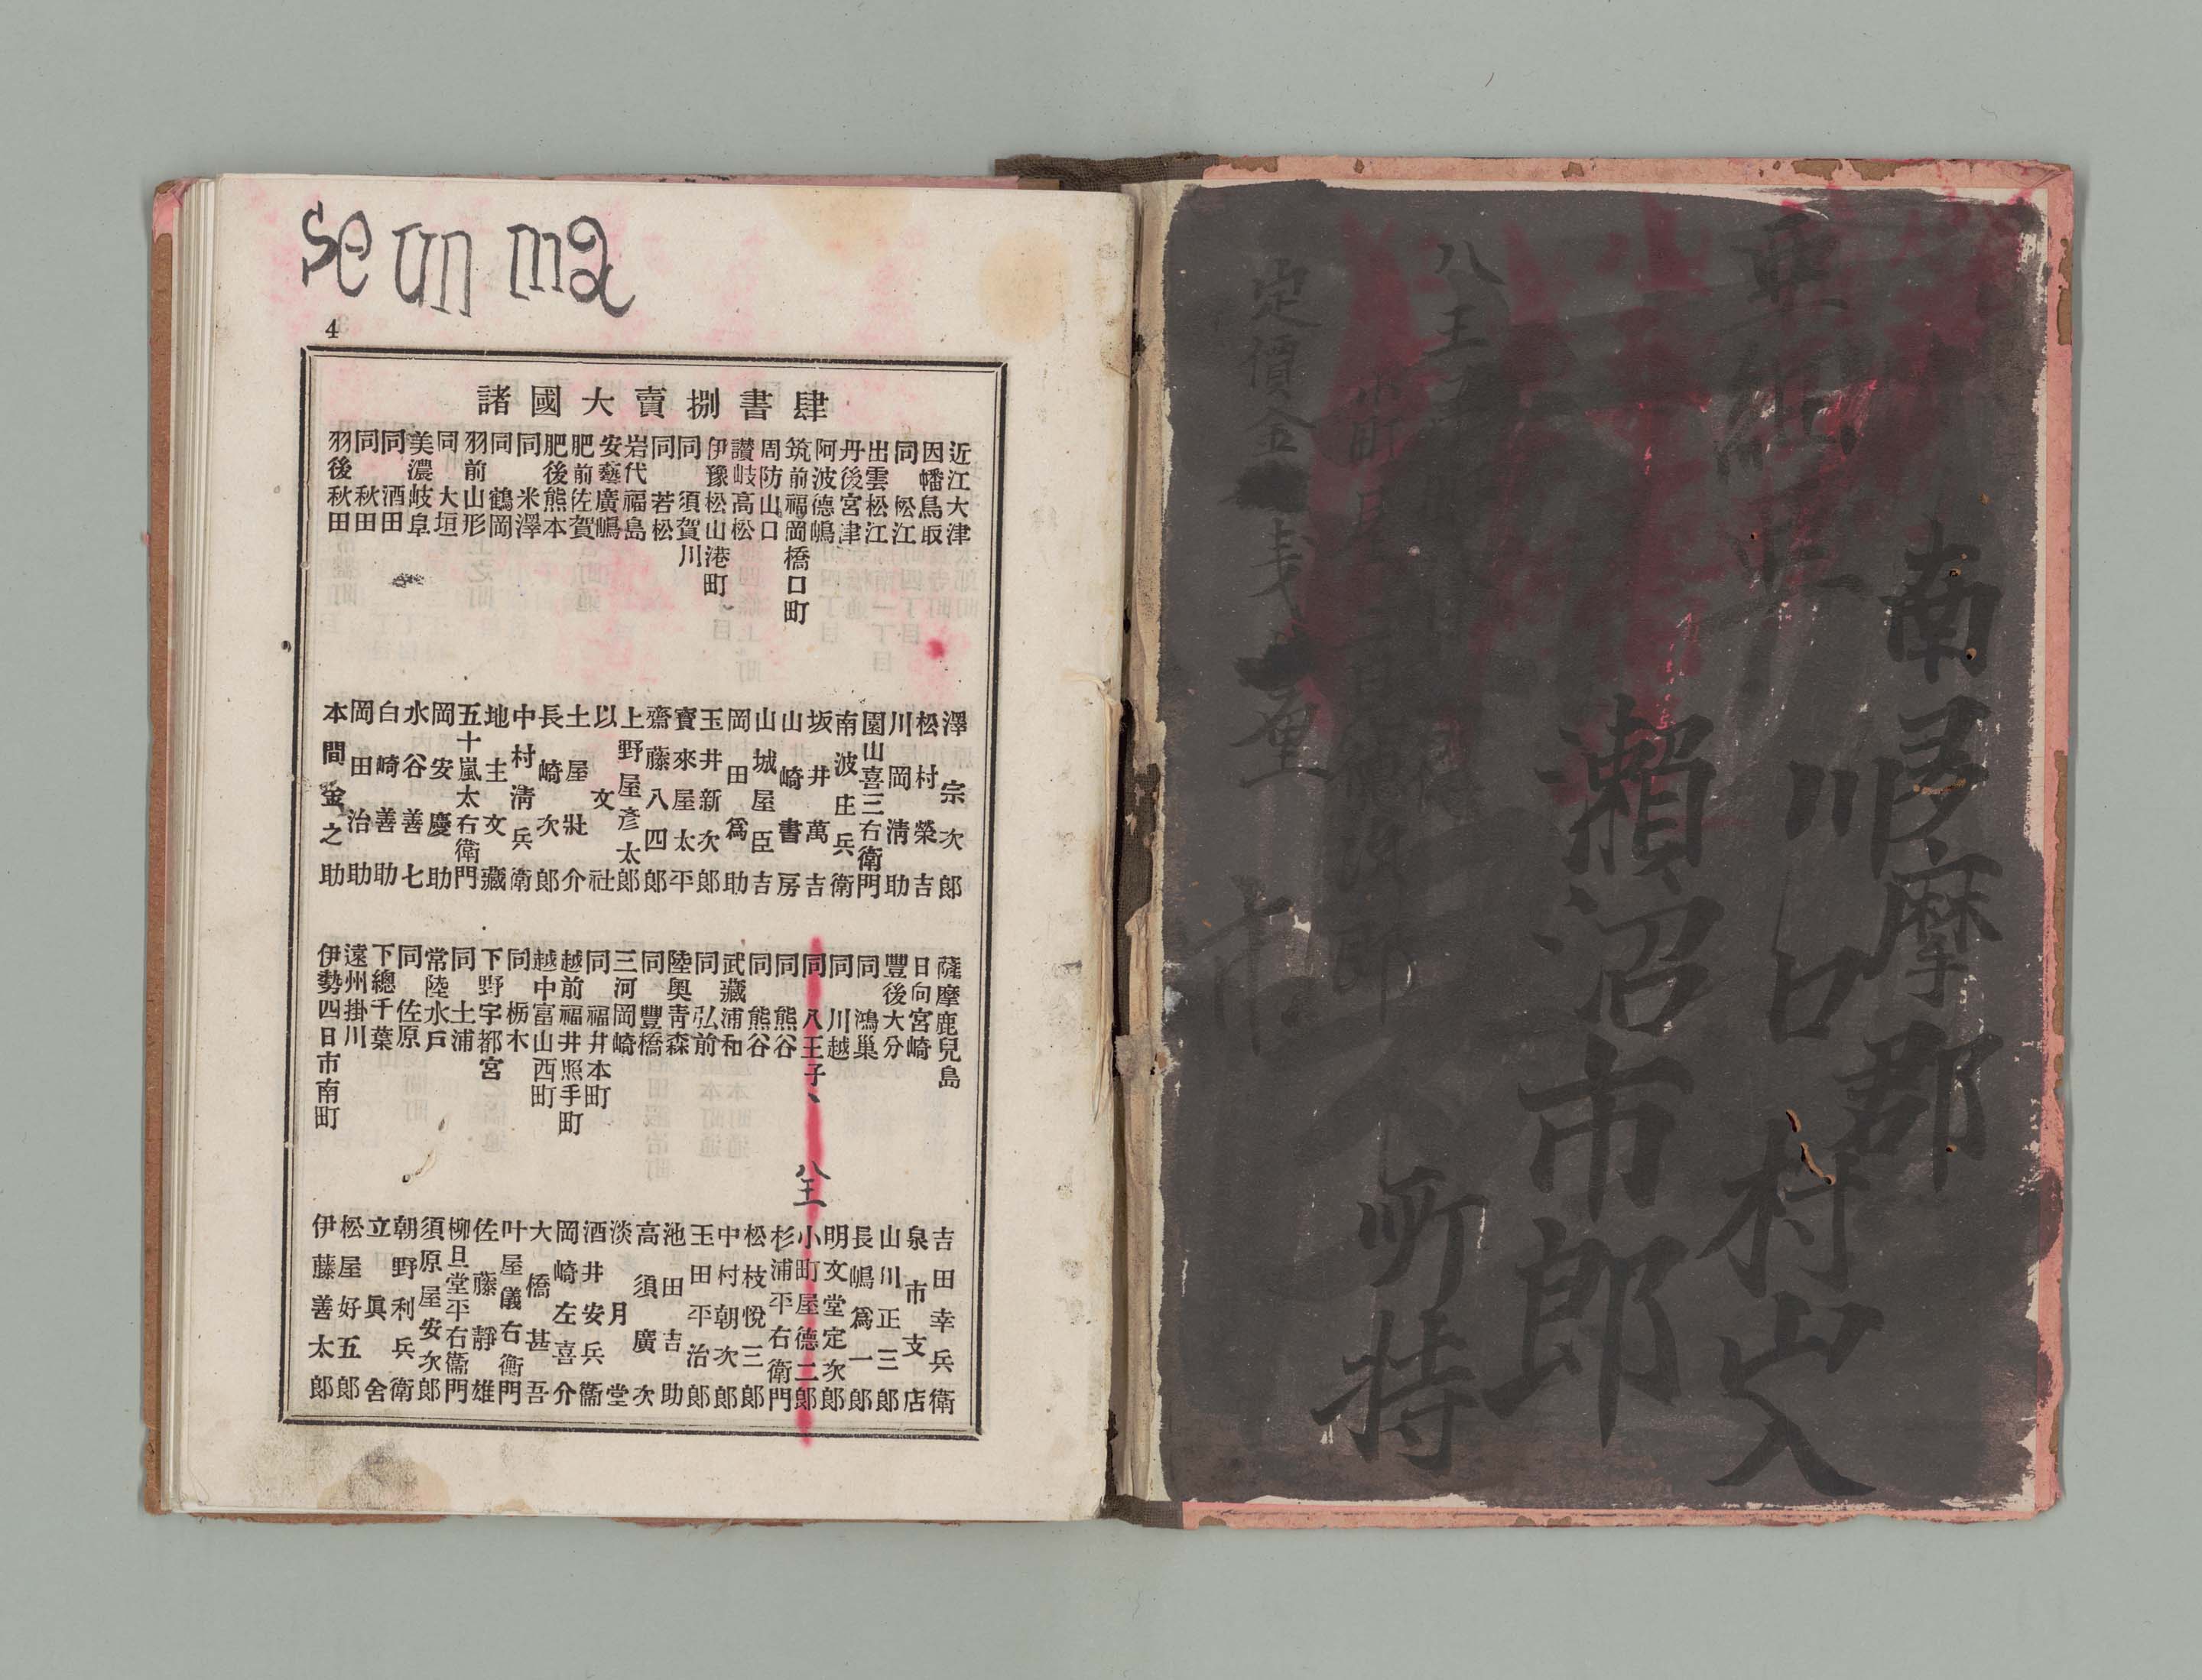 se un ma
4
諸國大賣捌書肆
近江大津 澤宗次郎
因幡鳥取 松村榮吉
同 松江 川岡清助
出雲松江 園山喜三右衛門
丹後宮津 南波庄兵衛
阿波德嶋 坂井萬吉
筑前福岡橋口町 山崎書房
周防山口 山城屋臣吉
讃岐高松 岡田爲助
伊豫松山港町 玉井新次郎
同 須賀川 寶來屋太平
同 若松 齋藤八四郎
岩代福島 上野屋彦太郎
安藝廣嶋 以文社
肥前佐賀 土屋壯介
肥後熊本 長崎次郎
同 米澤 中村清兵衛
同 鶴岡 地主文藏
羽前山形 五十嵐太右衛門
同 大垣 岡安慶助
美濃岐阜 水谷善七
同 酒田 白崎善助
同 秋田 岡田治助
羽後秋田 本間金之助
薩摩鹿兒島 吉田幸兵衛
日向宮崎 泉市支店
豐後大分 山川正三郎
同 鴻巢 長嶋爲一郎
同 川越 明文堂定次郎
同 八王子、 八王 小町屋德二郎
同 熊谷 杉浦平右衛門
同 熊谷 松枝悅三郎
武藏浦和 中村朝次郎
同 弘前 玉田平治郎
陸奧靑森 池田吉助
同 豐橋 高須廣次
三河岡崎 淡月堂
同 福井本町 酒井安兵衞
越前福井照手町 岡崎左喜介
越中富山西町 大橋甚吾
同 栃木 叶屋儀右衛門
下野宇都宮 佐藤靜雄
同 土浦 柳旦堂平右衞門
常陸水戸 須原屋安次郎
同 佐原 朝野利兵衛
下總千葉 立眞舍
遠州掛川 松屋好五郎
伊勢四日市南町 伊藤善太郎
南多摩郡
川口村山入
瀬沼市郎
八王子
定價金